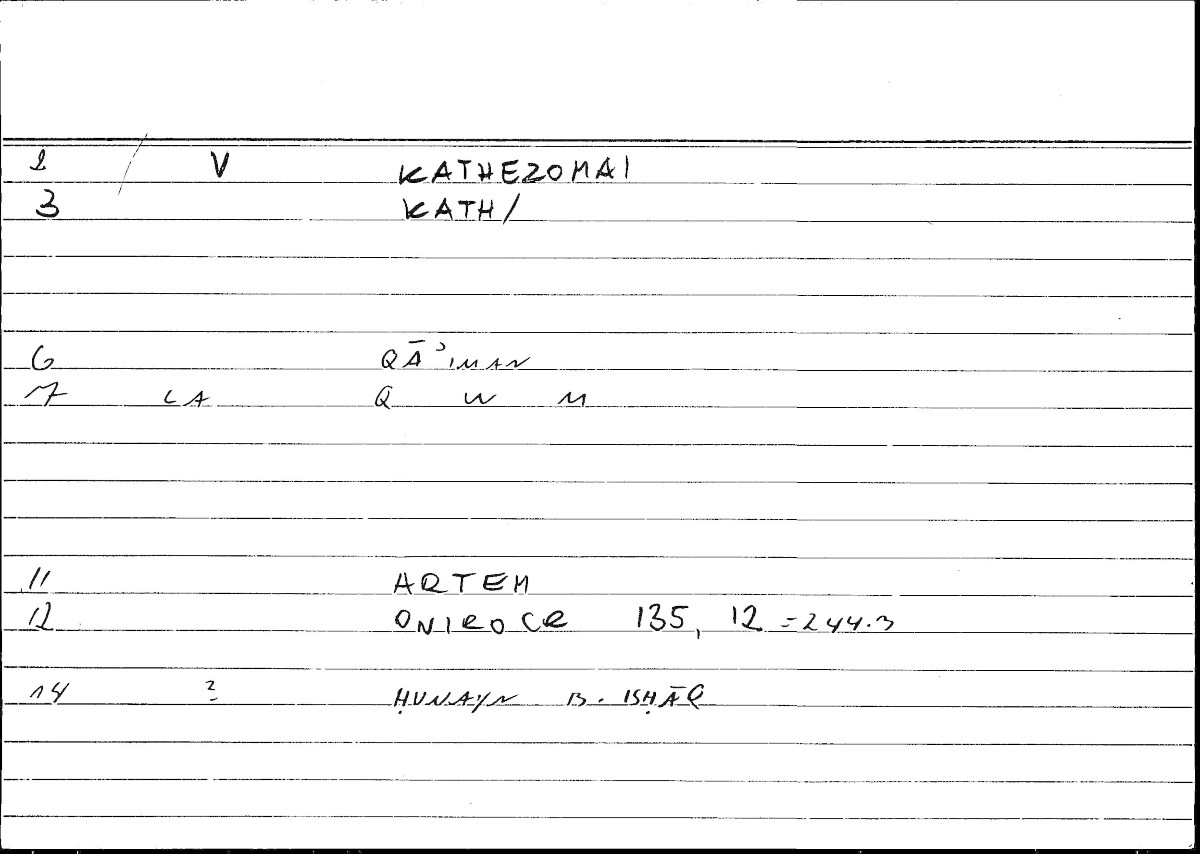 2 / V KATHEZOMAI
3 KATH/
6 QĀʾIMAN
7 LA Q W M
11 ARTEM
12 ONIROCR 135, 12 = 244.3
14 2 ḤUNAYN B. ISḤĀQ